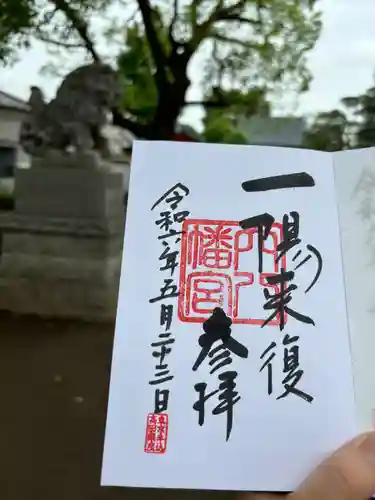 一陽来復
穴八幡宮
参拝
令和六年五月二十三日